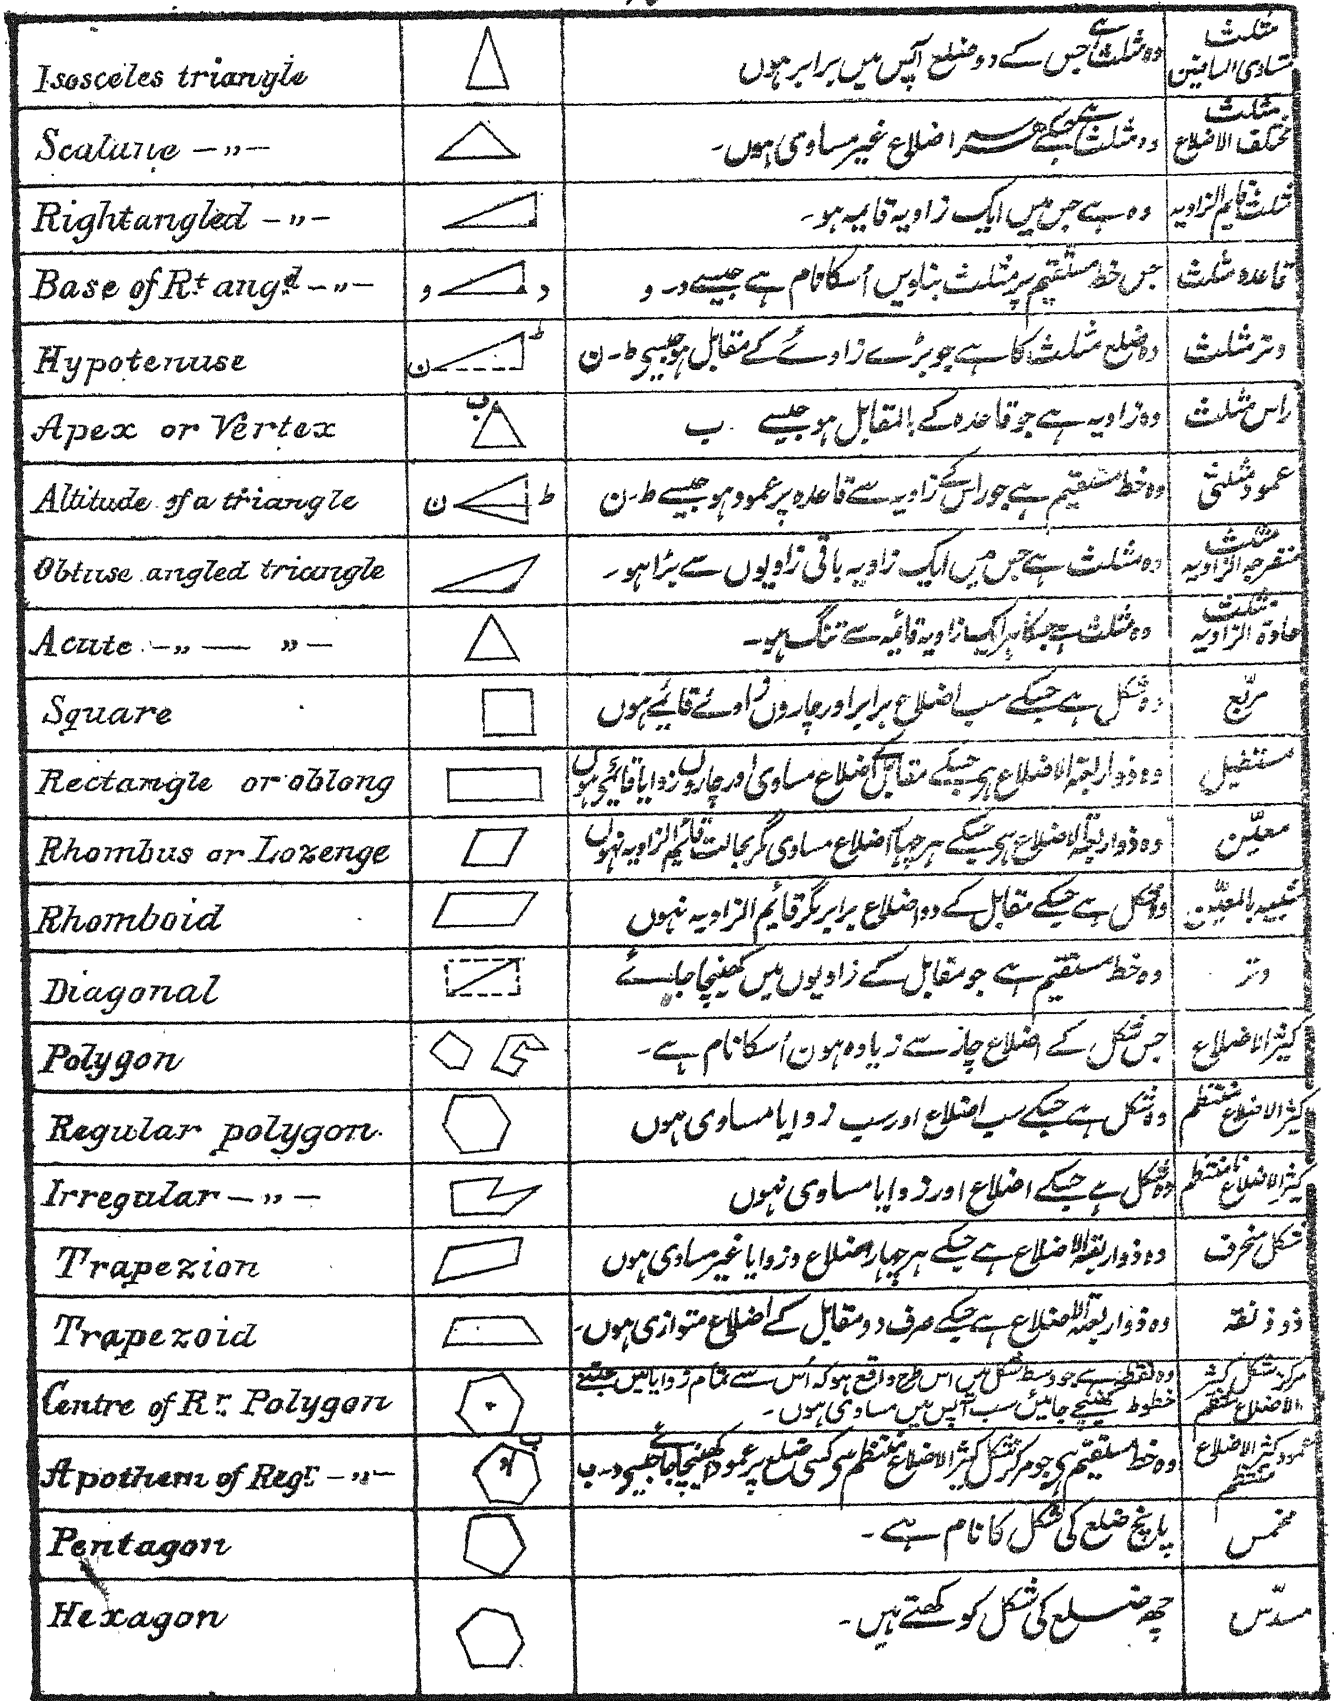 Isosceles triangle وہ مثلث ہے جس کے دو ضلع آپس میں برابر ہوں مثلث متساوی الساقین
Scalune -„- وہ مثلث ہے جسکے ہر سہ اضلاع غیر مساوی ہوں۔ مثلث مختلف الاضلاع
Rightangled -„- وہ ہے جس میں ایک زاویہ قایمہ ہو۔ مثلث قایم الزاویہ
Base of Rt. angd. -„- و د جس خط مستقیم پر مثلث بناویں اُسکا نام ہے جیسے د۔ و قاعدہ مثلث
Hypotenuse ن ط وہ ضلع مثلث کا ہے جو بڑے زاوئے کے مقابل ہو جیسے ط۔ن وتر مثلث
Apex or Vertex ب وہ زاویہ ہے جو قاعدہ کے بالمقابل ہو جیسے ب راس مثلث
Altitude of a triangle ن ط وہ خط مستقیم ہے جو راس کے زاویہ سے قاعدہ پر عمود ہو جیسے ط۔ن عمود مثلثی
Obtuse angled triangle وہ مثلث ہے جس میں ایک زاویہ باقی زاویوں سے بڑا ہو۔ مثلث منفرجہ الزاویہ
Acute -„- — „- وہ مثلث ہے جسکا ہر ایک زاویہ قائمہ سے تنگ ہو۔ مثلث حادۃ الزاویہ
Square وہ شکل ہے جسکے سب اضلاع برابر اور چاروں زاوئے قائیمے ہوں مربّع
Rectangle or oblong وہ ذواربعۃ الاضلاع ہی جسکے مقابل کے اضلاع مساوی اور چاروں زوایا قائیمے ہوں مستطیل
Rhombus or Lozenge وہ ذواربعۃ الاضلاع ہی جسکے ہر چہار اضلاع مساوی مگر بحالت قائم الزاویہ نہوں معیّن
Rhomboid وہ شکل ہے جسکے مقابل کے دو اضلاع برابر مگر قائیم الزاویہ نہوں شبیہ بالمعیّن
Diagonal وہ خط مستقیم ہے جو مقابل کے زاویوں میں کھینچا جائے وتر
Polygon جس شکل کے اضلاع چار سے زیادہ ہون اُسکا نام ہے۔ کثیر الاضلاع
Regular polygon. وہ شکل ہے جسکے سب اضلاع اور سب زوایا مساوی ہوں کثیر الاضلاع منتظم
Irregular -„- وہ شکل ہے جسکے اضلاع اور زوایا مساوی نہوں کثیر الاضلاع نا منتظم
Trapezion وہ ذواربعۃ الاضلاع ہے جسکے ہر چہار اضلاع و زوایا غیر مساوی ہوں شکل منحرف
Trapezoid وہ ذواربعۃ الاضلاع ہے جسکے صرف دو مقابل کے اضلاع متوازی ہوں۔ ذوذنقہ
Centre of Rr. Polygon وہ نقطہ ہے جو وسط شکل میں اس طرح واقع ہو کہ اُس سے تمام زوایا میں جتنے مرکز شکل کثیر
خطوط کھینچے جائیں سب آپس میں مساوی ہوں۔ الاضلاع منتظم
Apothem of Regr. -„- و ب وہ خط مستقیم ہی جو مرکز شکل کثیر الاضلاع منتظم سی کسی ضلع پر عمود کھینچا جائے جیسے و۔ب عمود کثیر الاضلاع منتظم
Pentagon پانچ ضلع کی شکل کا نام ہے۔ مخمس
Hexagon چھ ضلع کی شکل کو کھتے ہیں۔ مسدّس